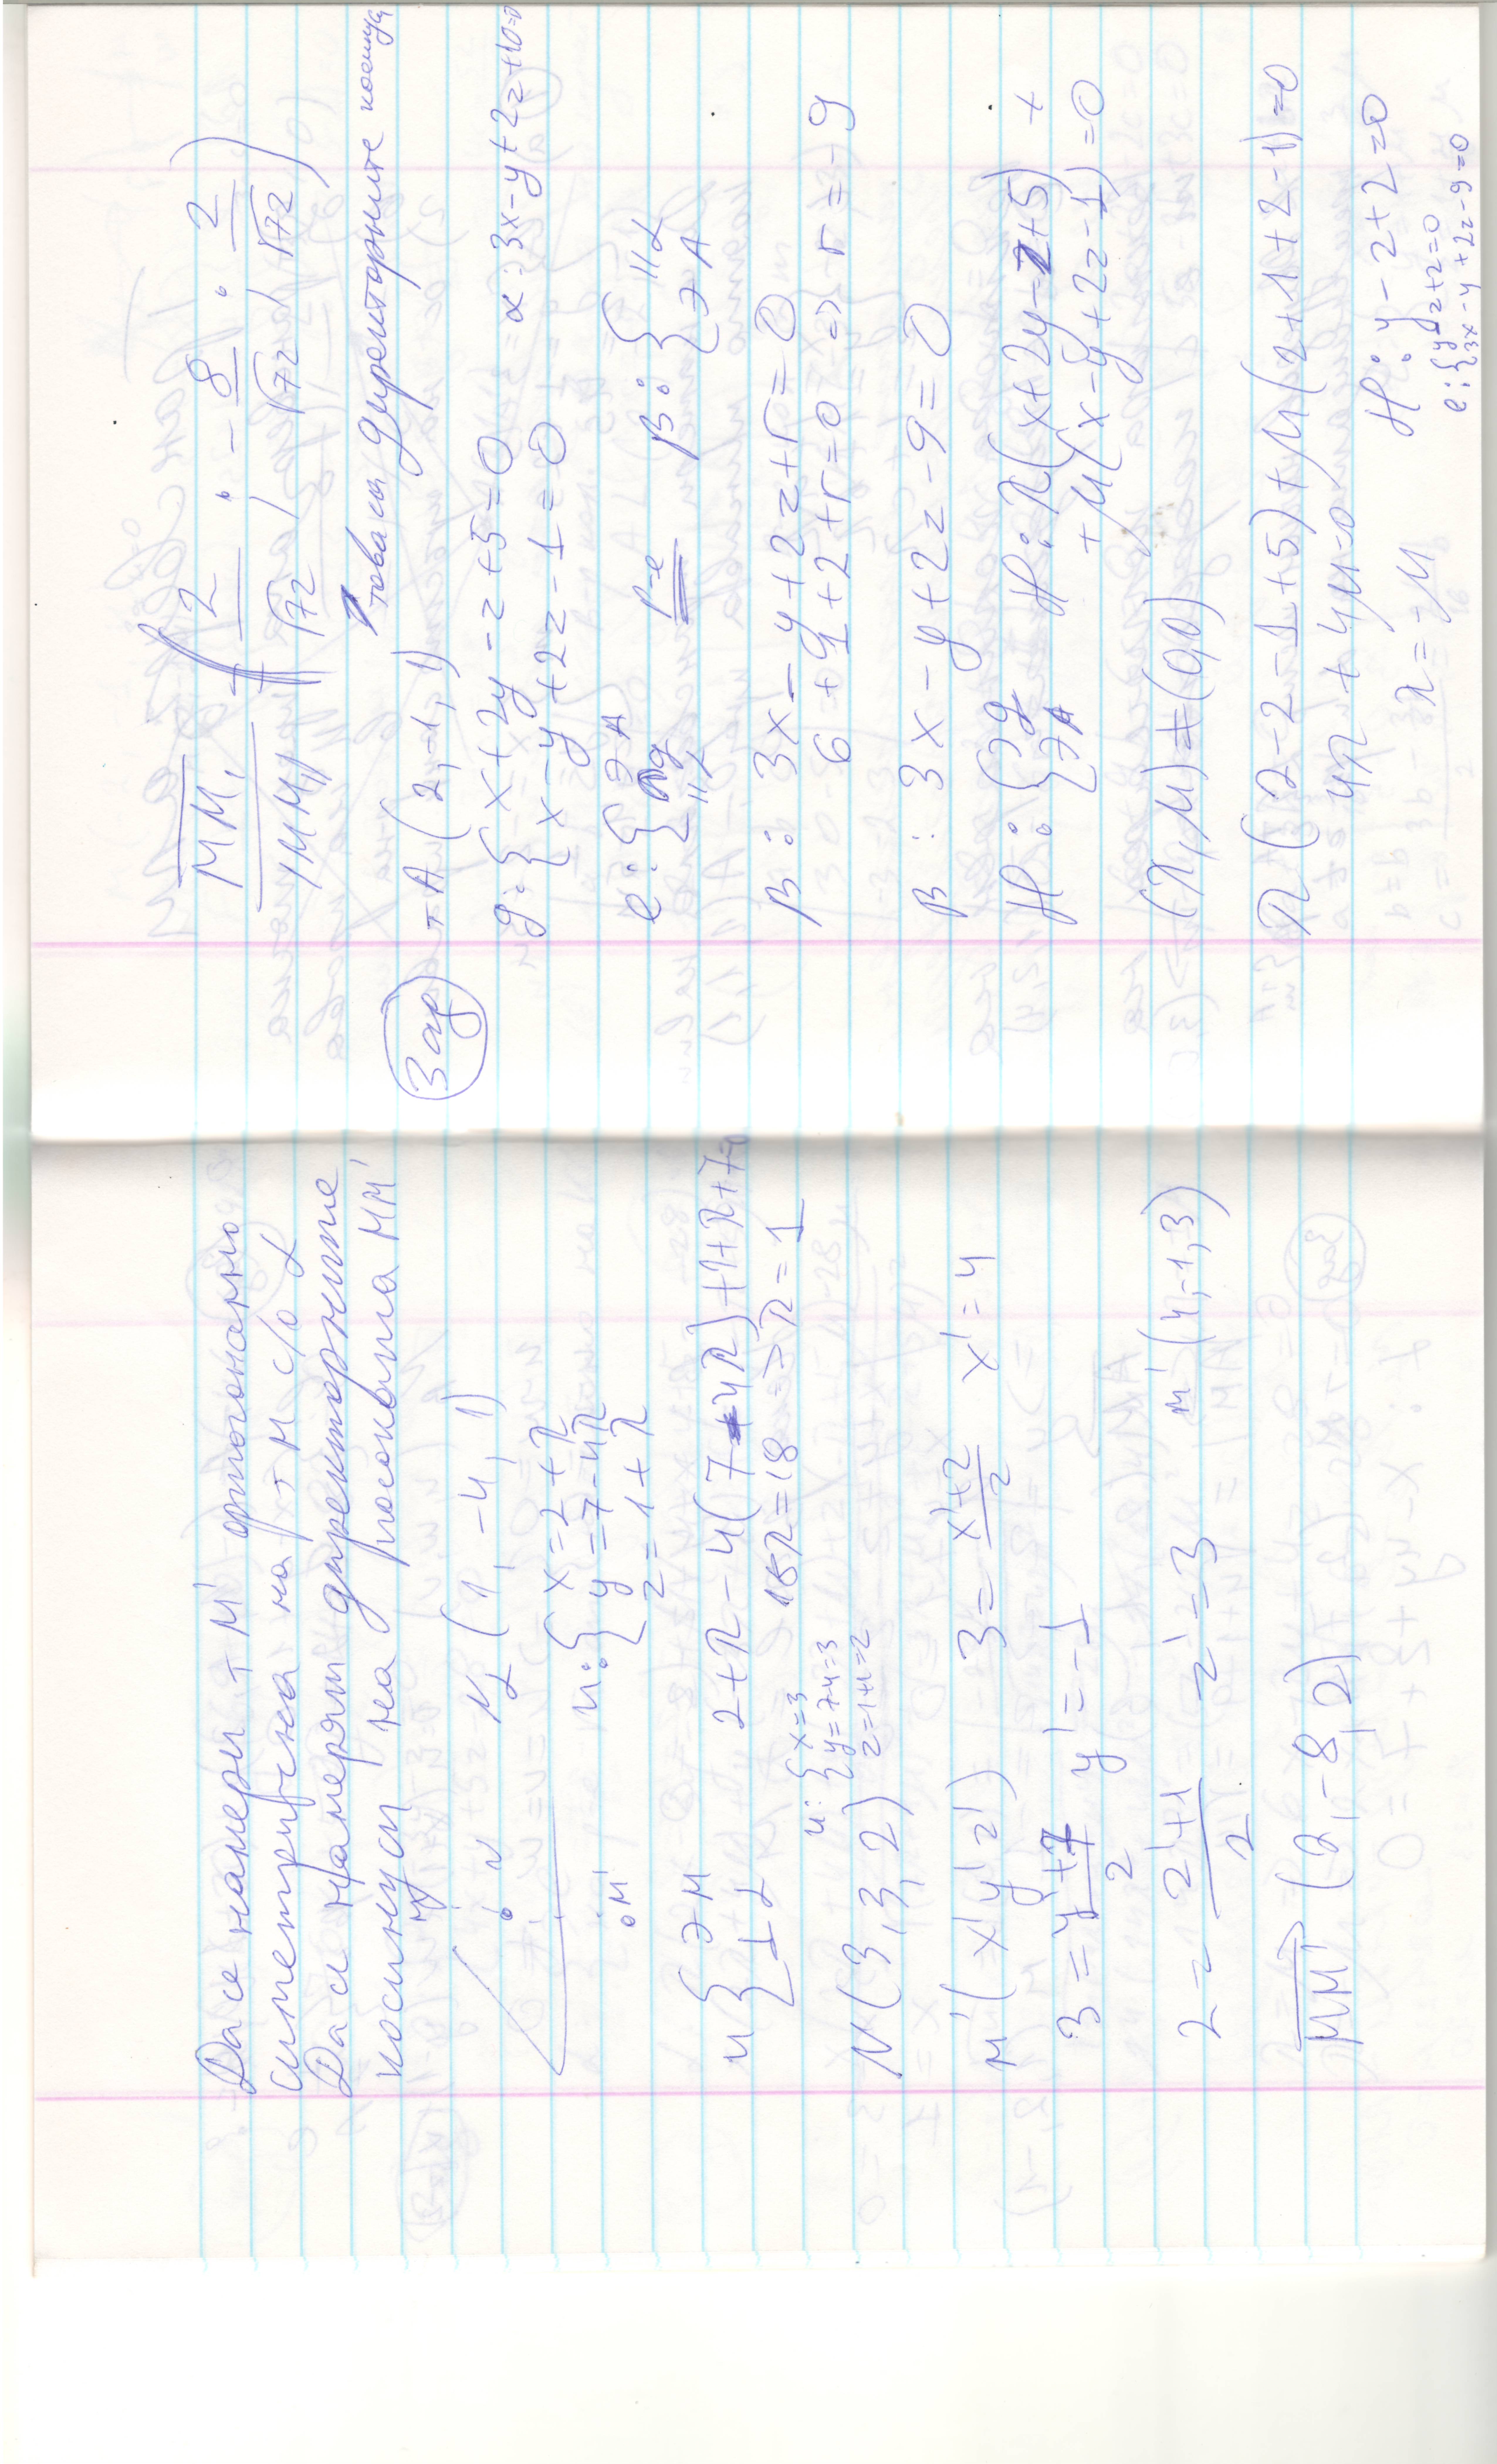 Да се намери т. М' ортогонално
симетрична на т. М с/о α
Да се намерят директорните
косинуси на посоката ММ'
М
N
М'
N α (1, -4, 1)
n: { x = 2 + λ
y = 7 - 4λ
z = 1 + λ
n { ∋ М
⊥ α
2 + λ - 4(7 - 4λ) + 1 + λ + 7 = 0
18λ = 18 => λ = 1
n: { x = 3
y = 7 - 4 = 3
z = 1 + 1 = 2
N (3, 3, 2)
М' (x' y' z')
3 = x' + 2 / 2 x' = 4
3 = y' + 7 / 2 y' = -1
2 = z' + 1 / 2 z' = 3 М' (4, -1, 3)
ММ' (2, -8, 2)
ММ' / |ММ'| = ( 2 / √72 , - 8 / √72 , 2 / √72 )
това са директорните косинуси
Зад
т. А (2, -1, 1)
g: { x + 2y - z + 5 = 0
x - y + 2z - 1 = 0
α: 3x - y + 2z + 10 = 0
e: { ∋ А
g
|| α
p-e
β: { || α
∋ А
β: 3x - y + 2z + r = 0
6 + 1 + 2 + r = 0 => r = -9
β: 3x - y + 2z - 9 = 0
H: { ∋ g
∋ А
H: λ(x + 2y - z + 5) +
+ μ(x - y + 2z - 1) = 0
(λ, μ) ≠ (0,0)
λ(2 - 2 - 1 + 5) + μ(2 + 1 + 2 - 1) = 0
4λ + 4μ = 0
λ = -μ
H: y - z + 2 = 0
e: { y - z + 2 = 0
3x - y + 2z - 9 = 0